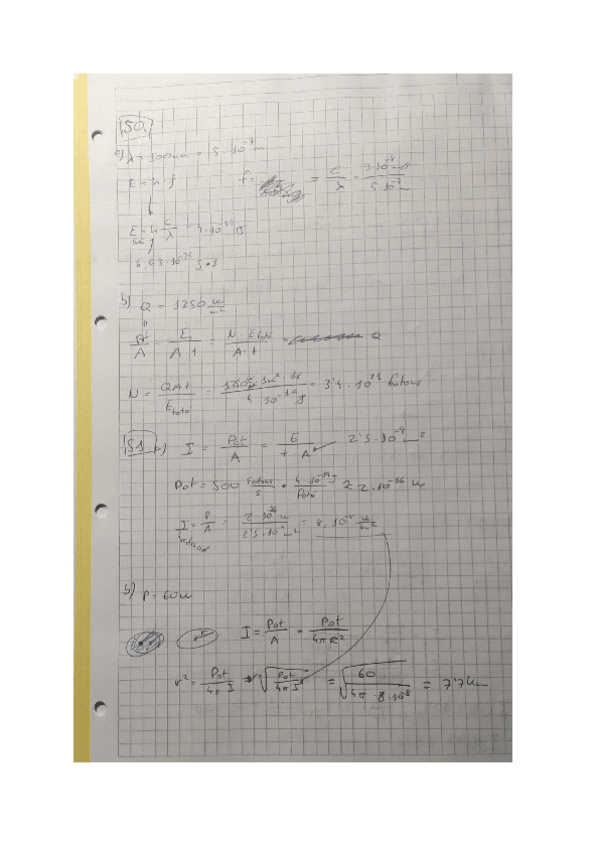 50.
a) λ = 500nm = 5·10⁻⁷ m
E = h·f    f = = c/λ = 3·10⁸ / 5·10⁻⁷ m
E = h c/λ = 4·10⁻¹⁹ J
6,63·10⁻³⁴ J·s
b) Q = 1350 w/m²
Pot/A = E/A·t = N·Efoto/A·t = Q
N = QAt/Efoto = ·1m²·1s / 4·10⁻¹⁹ J = 3'4·10²¹ fotons
51. a) I = Pot/A = E/t·A    2'5·10⁻⁹ m²
Pot = 500 fotons/s · 4·10⁻¹⁹ J/foto ≈ 2·10⁻¹⁶ w
I = P/A = 2·10⁻¹⁶ / 2'5·10⁻⁹ m² = 8·10⁻⁸ w/m²
b) P = 60w
I = Pot/A = Pot/4πR²
r² = Pot/4πI → √(Pot/4πI) = √(60/4π·8·10⁻⁸) = 7'7 km